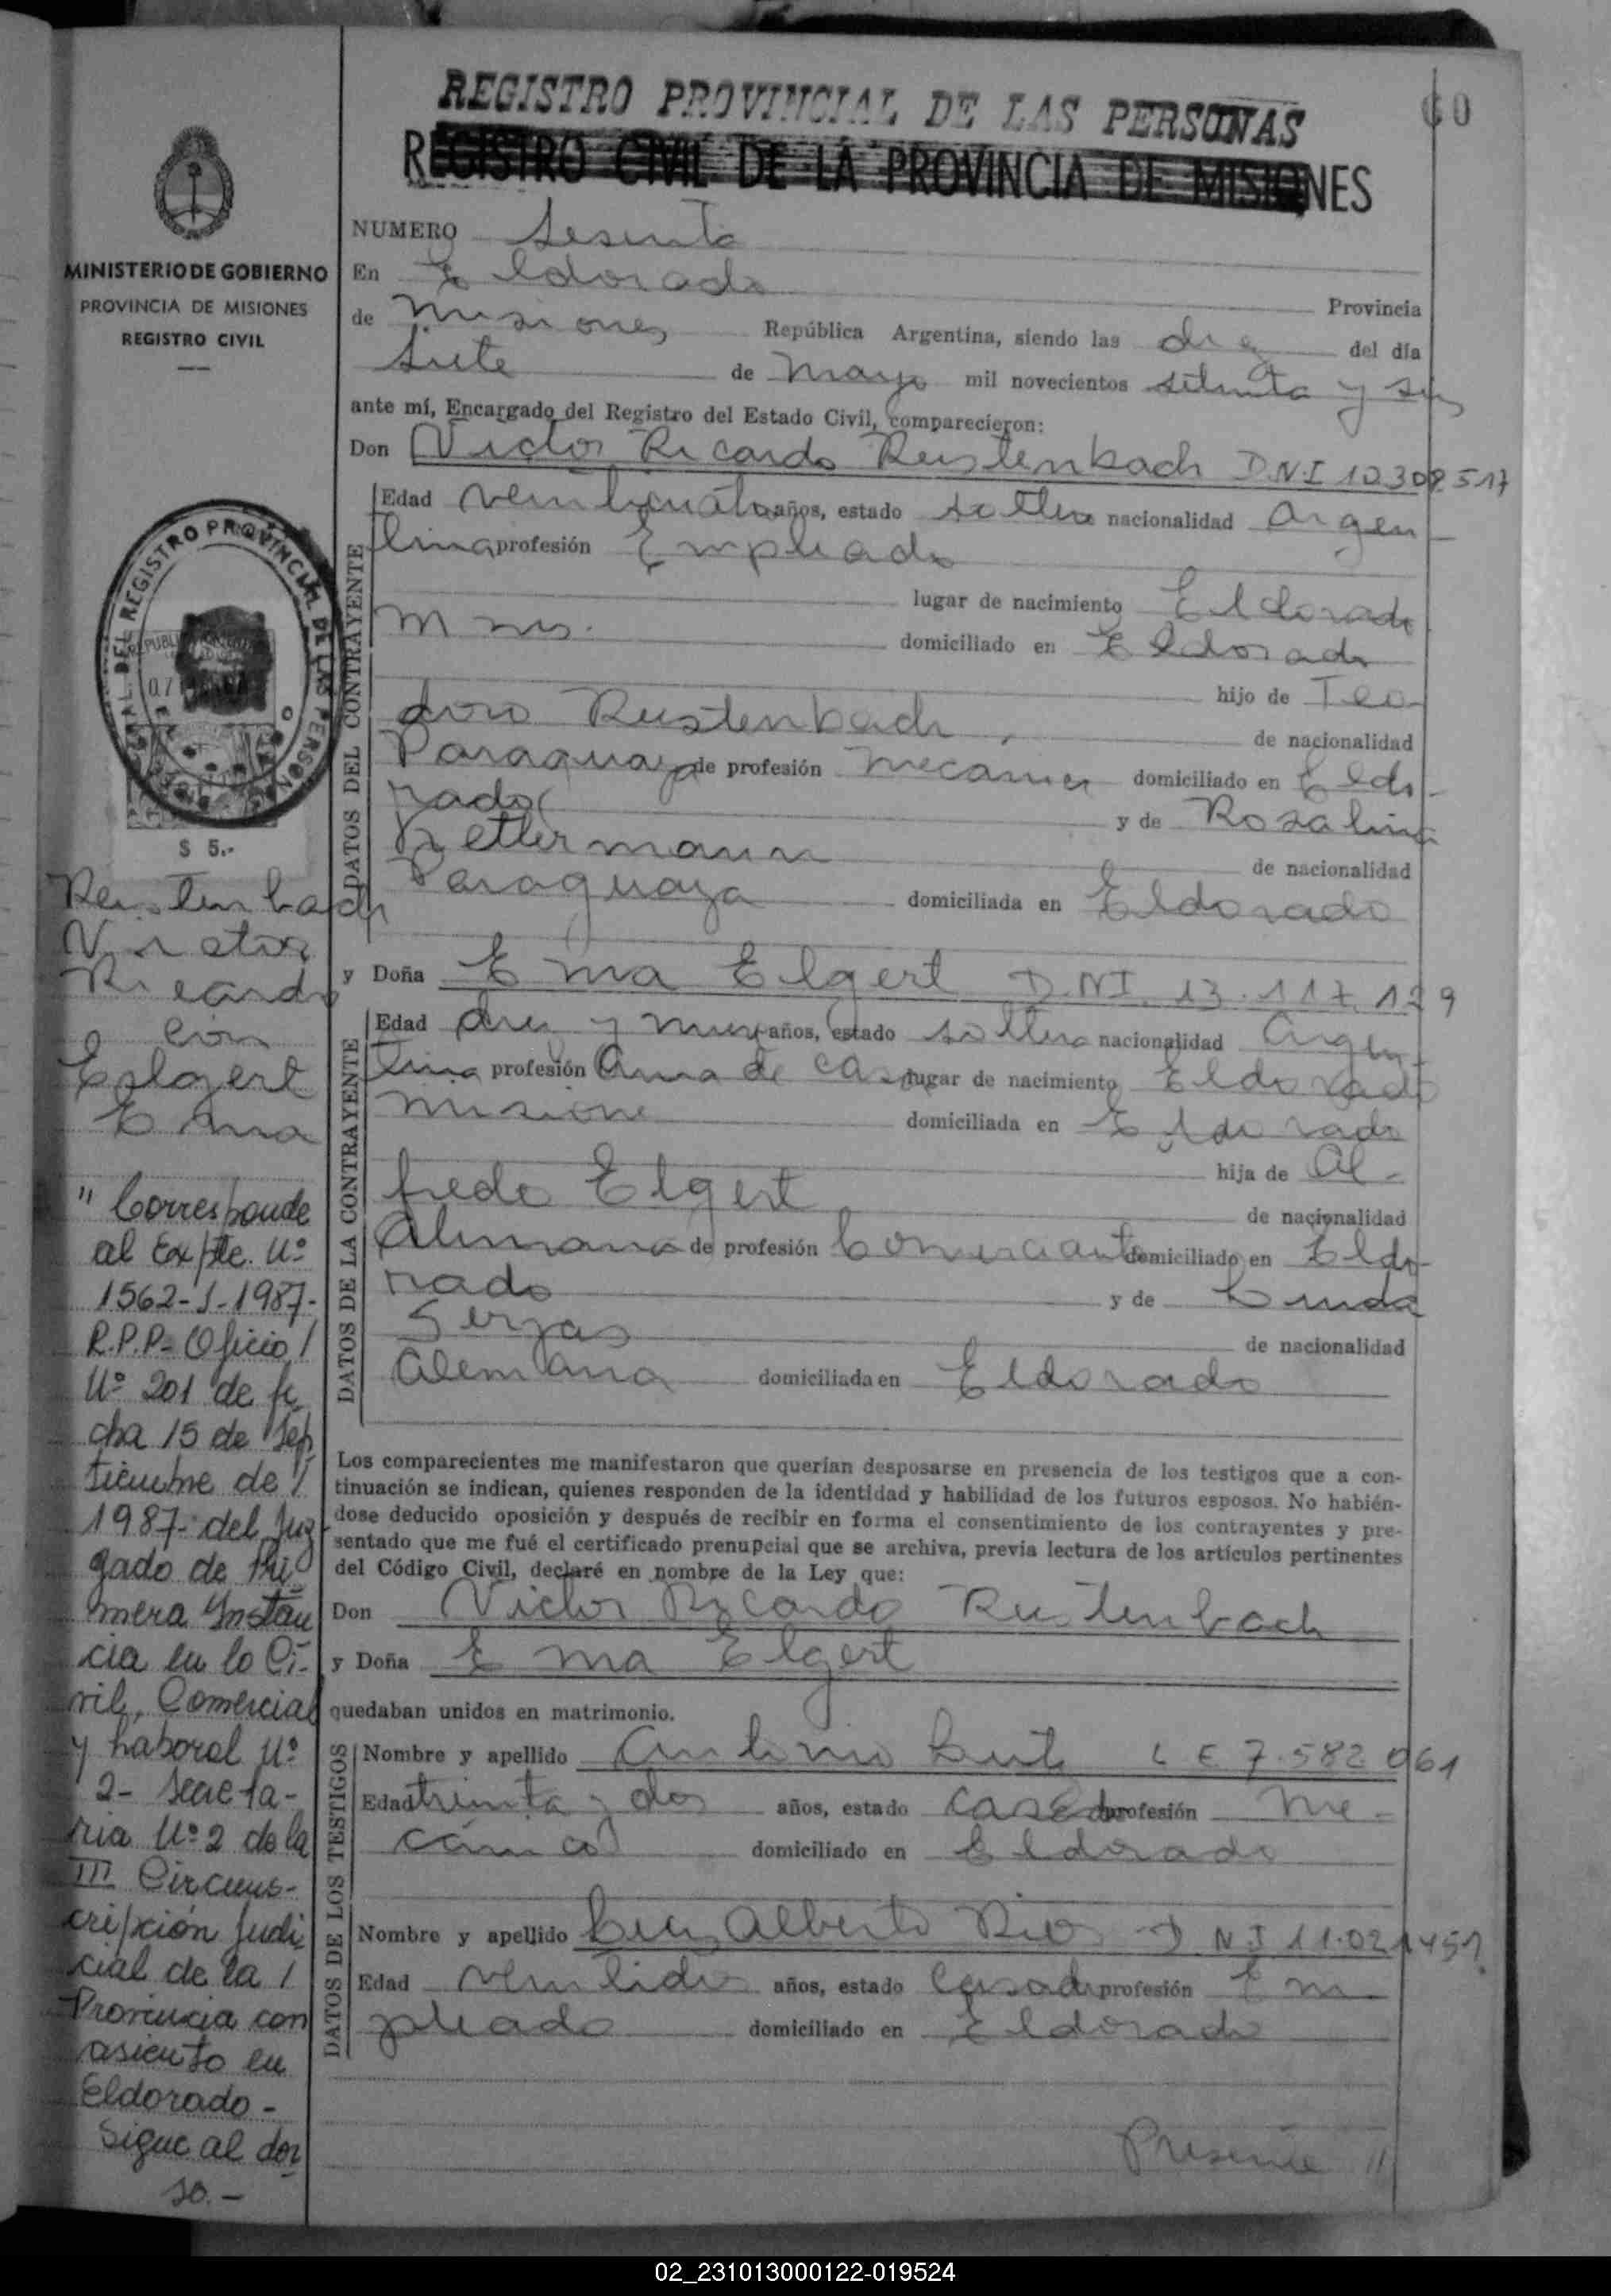 REGISTRO PROVINCIAL DE LAS PERSONAS
REGISTRO CIVIL DE LA PROVINCIA DE MISIONES
60
MINISTERIO DE GOBIERNO
PROVINCIA DE MISIONES
REGISTRO CIVIL
NUMERO Sesenta
En Eldorado Provincia
de Misiones República Argentina, siendo las diez del día
siete de Mayo mil novecientos setenta y seis
ante mí, Encargado del Registro del Estado Civil, comparecieron:
Don Victor Ricardo Reistenbach D.N.I
DATOS DEL CONTRAYENTE
Edad veinticuatro años, estado soltero nacionalidad Argen
tina profesión Empleado
lugar de nacimiento Eldorado
Mnes. domiciliado en Eldorado
hijo de Teo-
doro Reistenbach, de nacionalidad
Paraguaya de profesión Mecanico domiciliado en Eldo-
rado y de Rosalina
Kettermann de nacionalidad
Paraguaya domiciliada en Eldorado
y Doña Ema Elgert D.NI. 13.117.129
DATOS DE LA CONTRAYENTE
Edad diez y nueve años, estado soltera nacionalidad Argen-
tina profesión Ama de casa lugar de nacimiento Eldorado
Misione domiciliada en Eldorado
hija de Al-
fredo Elgert de nacionalidad
Alemana de profesión Comerciante domiciliado en Eldo-
rado y de
de nacionalidad
Alemana domiciliada en Eldorado
Los comparecientes me manifestaron que querían desposarse en presencia de los testigos que a con-
tinuación se indican, quienes responden de la identidad y habilidad de los futuros esposos. No habién-
dose deducido oposición y después de recibir en forma el consentimiento de los contrayentes y pre-
sentado que me fué el certificado prenupcial que se archiva, previa lectura de los artículos pertinentes
del Código Civil, declaré en nombre de la Ley que:
Don Victor Ricardo Reistenbach
y Doña Ema Elgert
quedaban unidos en matrimonio.
DATOS DE LOS TESTIGOS
Nombre y apellido Antonio L E 7.582 061
Edad treinta y dos años, estado casado profesión Me-
cánico domiciliado en Eldorado
Nombre y apellido Luis Alberto Rios D N I
Edad veintidos años, estado Casado profesión Em
pleado domiciliado en Eldorado
Presente //
DEL REGISTRO PROVINCIAL DE LAS PERSON
$ 5.-
Reistenbach
Victor
Ricardo
con
Elgert
Ema
" Corresponde
al Expte. Nº
1562-J-1987-
R.P.P- Oficio /
Nº 201 de fe
cha 15 de Sep
tiembre de /
1987- del Juz
gado de Pri
mera Instan
cia en lo Ci-
vil, Comercial
y Laboral Nº
2- Secreta-
ria Nº 2 de la
III Circuns-
cripción Judi
cial de la /
Provincia con
asiento en
Eldorado -
Sigue al dor
so.-
02_231013000122-019524